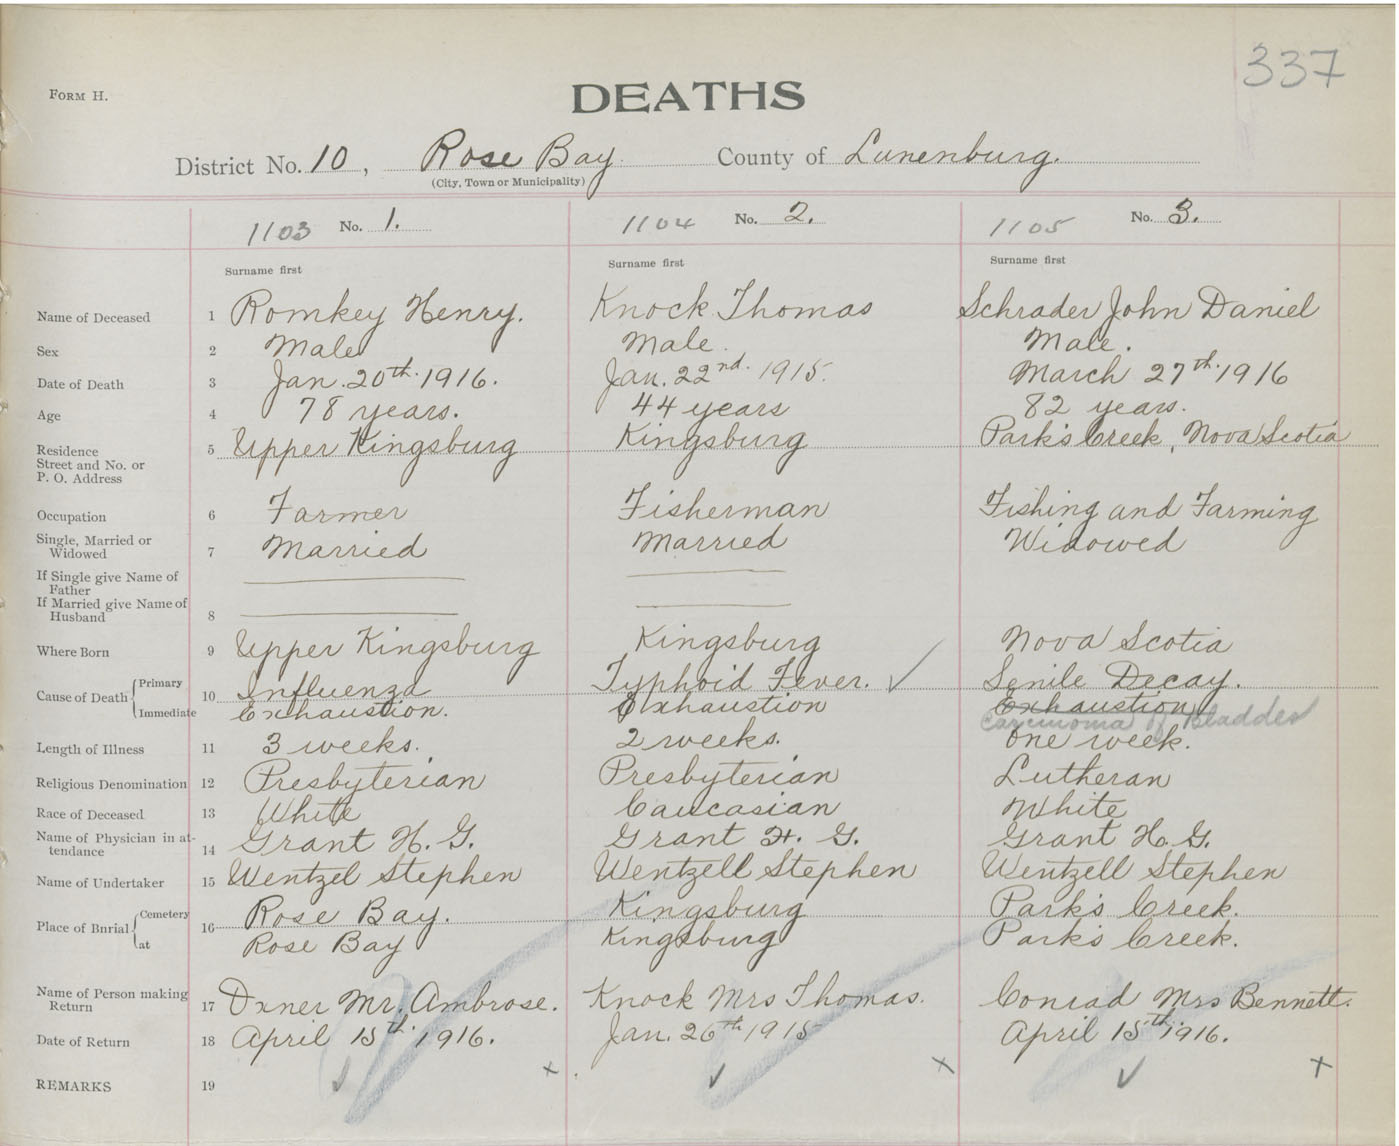 337
FORM H.
DEATHS
District No. 10, Rose Bay County of Lunenburg.
(City, Town or Municipality)
1103 No. 1. 1104 No. 2. 1105 No. 3.
Surname first Surname first Surname first
Name of Deceased 1 Romkey Henry. Knock Thomas Schrader John Daniel
Sex 2 Male Male. Male.
Date of Death 3 Jan. 20th. 1916. Jan. 22nd. 1915. March 27th. 1916
Age 4 78 years. 44 years 82 years.
Residence 5 Upper Kingsburg Kingsburg Park's Creek, Nova Scotia
Street and No. or
P. O. Address
Occupation 6 Farmer Fisherman Fishing and Farming
Single, Married or
Widowed 7 Married Married Widowed
If Single give Name of
Father
If Married give Name of
Husband 8
Where Born 9 Upper Kingsburg Kingsburg Nova Scotia
Cause of Death Primary 10 Influenza Typhoid Fever. ✓ Senile Decay.
Immediate Exhaustion. Exhaustion Exhaustion
Carcinoma of Bladder
Length of Illness 11 3 weeks. 2 weeks. One week.
Religious Denomination 12 Presbyterian Presbyterian Lutheran
Race of Deceased 13 White Caucasian White
Name of Physician in at-
tendance 14 Grant H. G. Grant H. G. Grant H. G.
Name of Undertaker 15 Wentzel Stephen Wentzell Stephen Wentzell Stephen
Place of Bnrial Cemetery 16 Rose Bay. Kingsburg Park's Creek.
at Rose Bay Kingsburg Park's Creek.
Name of Person making
Return 17 Mr. Ambrose. Knock Mrs Thomas. Conrad Mrs Bennett.
Date of Return 18 April 15th. 1916. Jan. 26th 1915 April 15th. 1916.
REMARKS 19 ✓ x ✓ x ✓ x